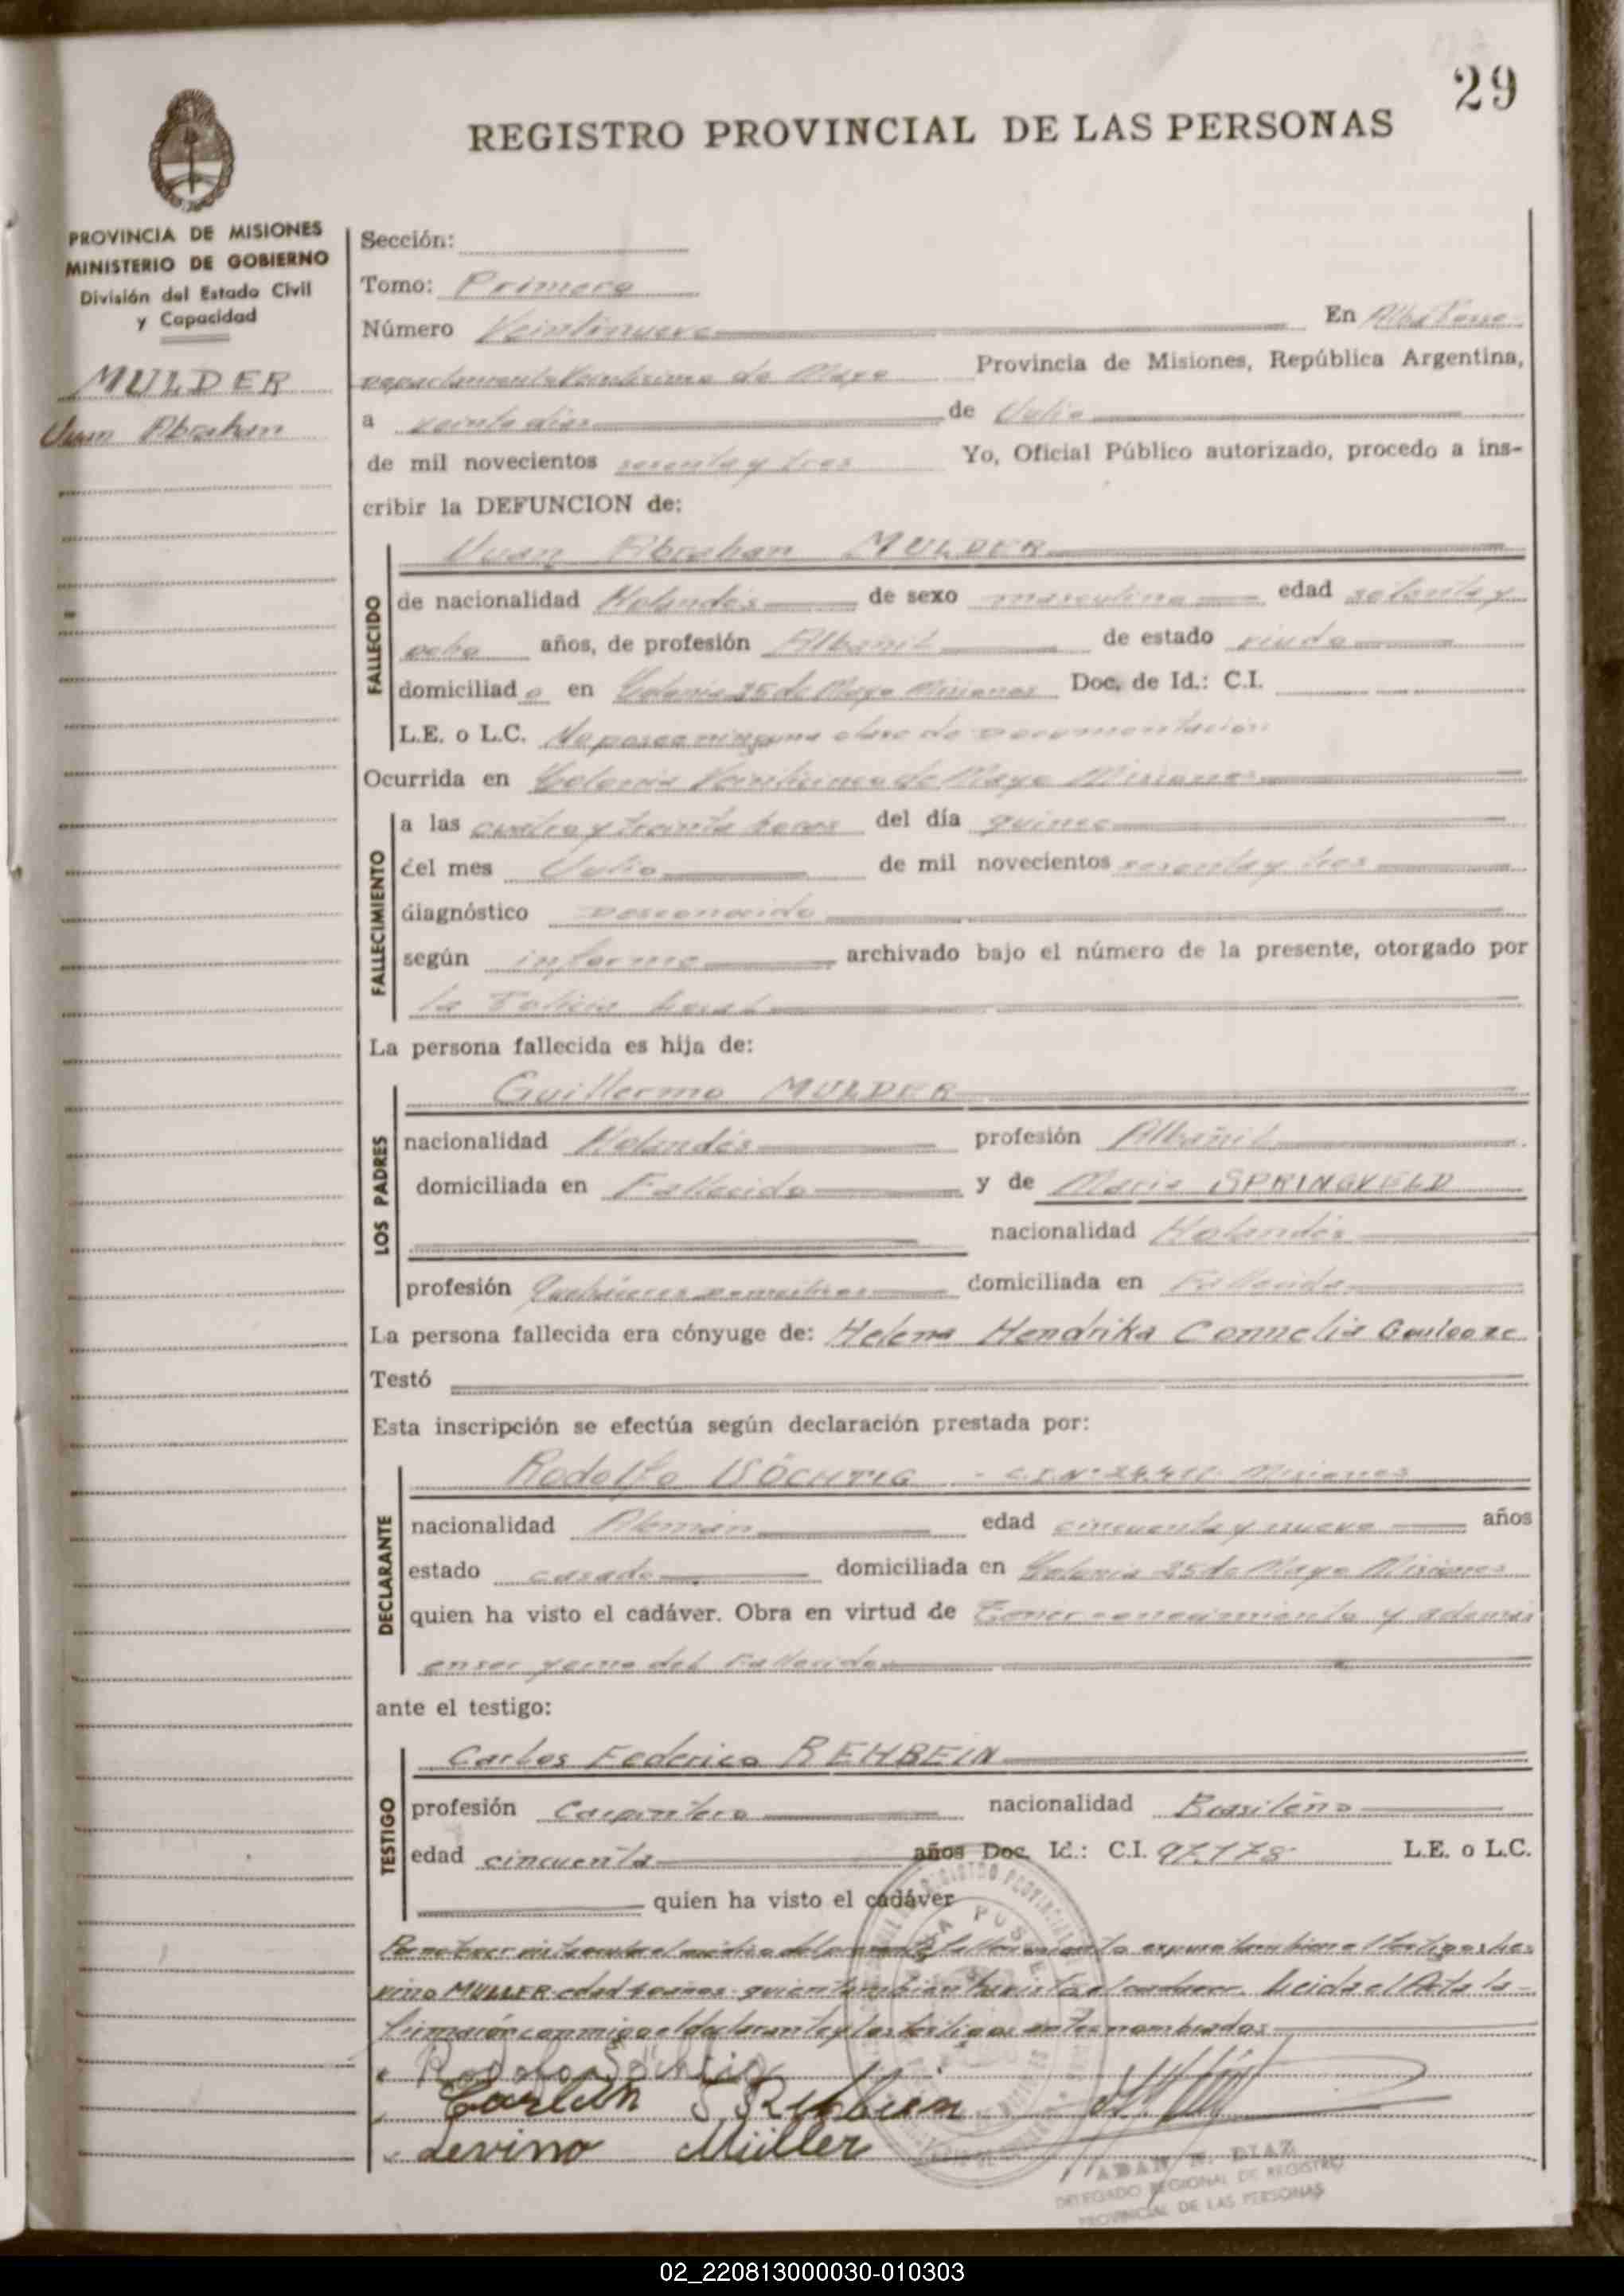 29
REGISTRO PROVINCIAL DE LAS PERSONAS
PROVINCIA DE MISIONES
MINISTERIO DE GOBIERNO
División del Estado Civil
y Capacidad
MULDER
Juan Abrahan
Sección:
Tomo: Primero
Número Veintinueve
En Alba Posse
Departamento Veinticinco de Mayo Provincia de Misiones, República Argentina,
a veinte días de Julio
de mil novecientos sesenta y tres Yo, Oficial Público autorizado, procedo a ins-
cribir la DEFUNCION de:
FALLECIDO
Juan Abrahan MULDER
de nacionalidad Holandés de sexo masculino edad setenta y
ocho años, de profesión Albañil de estado viudo
domiciliado en Colonia 25 de Mayo Misiones Doc. de Id.: C.I.
L.E. o L.C. No posee ninguna clase de Documentación
Ocurrida en Colonia Veinticinco de Mayo Misiones
FALLECIMIENTO
a las cuatro y treinta horas del día quince
del mes Julio de mil novecientos sesenta y tres
diagnóstico Desconocido
según informe archivado bajo el número de la presente, otorgado por
la Policía local
La persona fallecida es hija de:
LOS PADRES
Guillermo MULDER
nacionalidad Holandés profesión Albañil
domiciliada en Fallecido y de Maria SPRINGVIELD
nacionalidad Holandés
profesión Quehaceres Domesticos domiciliada en Fallecida
La persona fallecida era cónyuge de: Helena Hendrika Cornnelia
Testó
Esta inscripción se efectúa según declaración prestada por:
DECLARANTE
Rodolfo SÖCHTIG - C.I.Nº 24.417 Misiones
nacionalidad Alemán edad cincuenta y nueve años
estado casado domiciliada en Colonia 25 de Mayo Misiones
quien ha visto el cadáver. Obra en virtud de Tener conocimiento y además
en ser yerno del Fallecido
ante el testigo:
TESTIGO
Carlos Federico REHBEIN
profesión Carpintero nacionalidad Brasileño
edad cincuenta años Doc. Id.: C.I. 97.178 L.E. o L.C.
quien ha visto el cadáver
MULLER edad años quien tambien ha visto el cadaver. Leida el Acta la
firmarón conmigo el declarante y los testigos antes nombrados
Rodolfo Söchtig
F. Rehbein
Levino Müller
ADAN N. DIAZ
DELEGADO REGIONAL DE REGISTRO
PROVINCIAL DE LAS PERSONAS
02_220813000030-010303